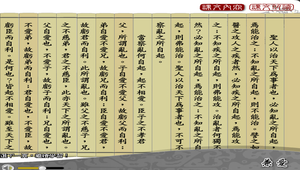 課文內容 課文附論
聖人以治天下為事者也，必知亂之所自起，
焉能治之；不知亂之所自起，則不能治。譬之如
醫之攻人之疾者然：必知疾之所自起，焉能攻
之；不知疾之所自起，則弗能攻。治亂者何獨不
然？必知亂之所自起，焉能治之；不知亂之所自
起，則弗能治之。聖人以治天下為事者也，不可不
察亂之所自起。
當察亂何自起？起不相愛。臣子之不孝君
父，所謂亂也。子自愛，不愛父，故虧父而自利；
弟自愛，不愛兄，故虧兄而自利；臣自愛，不愛君，
故虧君而自利，此所謂亂也。雖父之不慈子，兄
之不慈弟，君之不慈臣，此亦天下之所謂亂也。
父自愛也，不愛子，故虧子而自利；兄自愛也，
不愛弟，故虧弟而自利；君自愛也，不愛臣，故
虧臣而自利。是何也？皆起不相愛。雖至天下之
兼愛